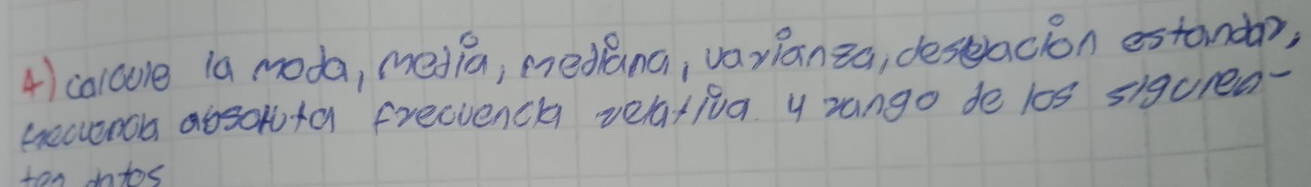 4) calcule la moda, media, mediana, varianza, desviación estandar,
frecuencia absoluta frecuencia relativa y rango de los siguien-
tes datos